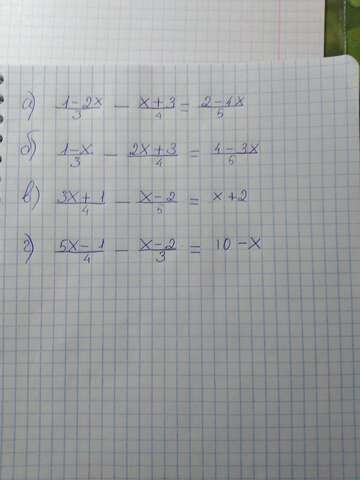 а) (1-2x)/3 - (x+3)/4 = (2-4x)/5
б) (1-x)/3 - (2x+3)/4 = (4-3x)/5
в) (3x+1)/4 - (x-2)/5 = x+2
г) (5x-1)/4 - (x-2)/3 = 10-x